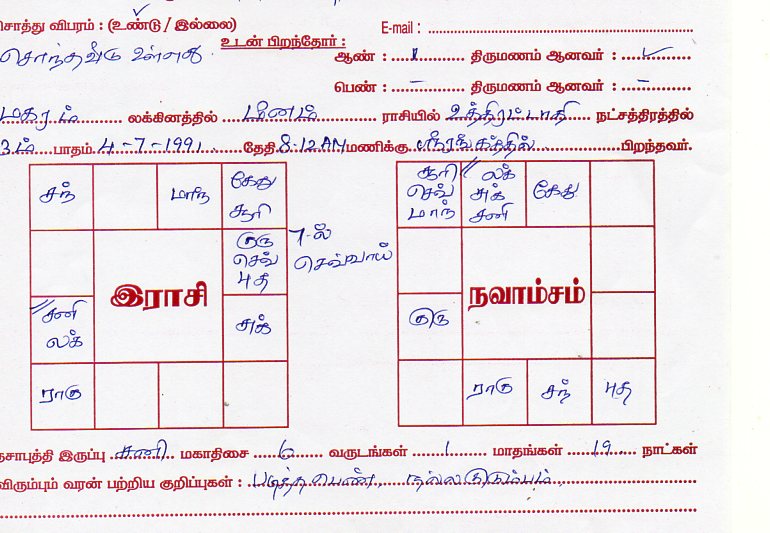 சொத்து விபரம் : (உண்டு / இல்லை) E-mail :
சொந்தவீடு உள்ளது உடன் பிறந்தோர் :
ஆண் : 1 திருமணம் ஆனவர் :
பெண் : – திருமணம் ஆனவர் : –
மகரம் லக்கினத்தில் மீனம் ராசியில் உத்திரட்டாதி நட்சத்திரத்தில்
3ம் பாதம் 4-7-1991 தேதி 8-12AM மணிக்கு ஸ்ரீரங்கத்தில் பிறந்தவர்.
சந் மாந் கேது
சூரி
குரு
செவ்
புத
7-ல்
செவ்வாய்
இராசி
சனி
லக்
சுக்
ராகு
சூரி
செவ்
மாந்
லக்
சுக்
சனி
கேது
நவாம்சம்
குரு
ராகு சந் புத
தசாபுத்தி இருப்பு சனி மகாதிசை 6 வருடங்கள் 1 மாதங்கள் 19 நாட்கள்
விரும்பும் வரன் பற்றிய குறிப்புகள் : படித்த பெண், நல்ல குடும்பம்